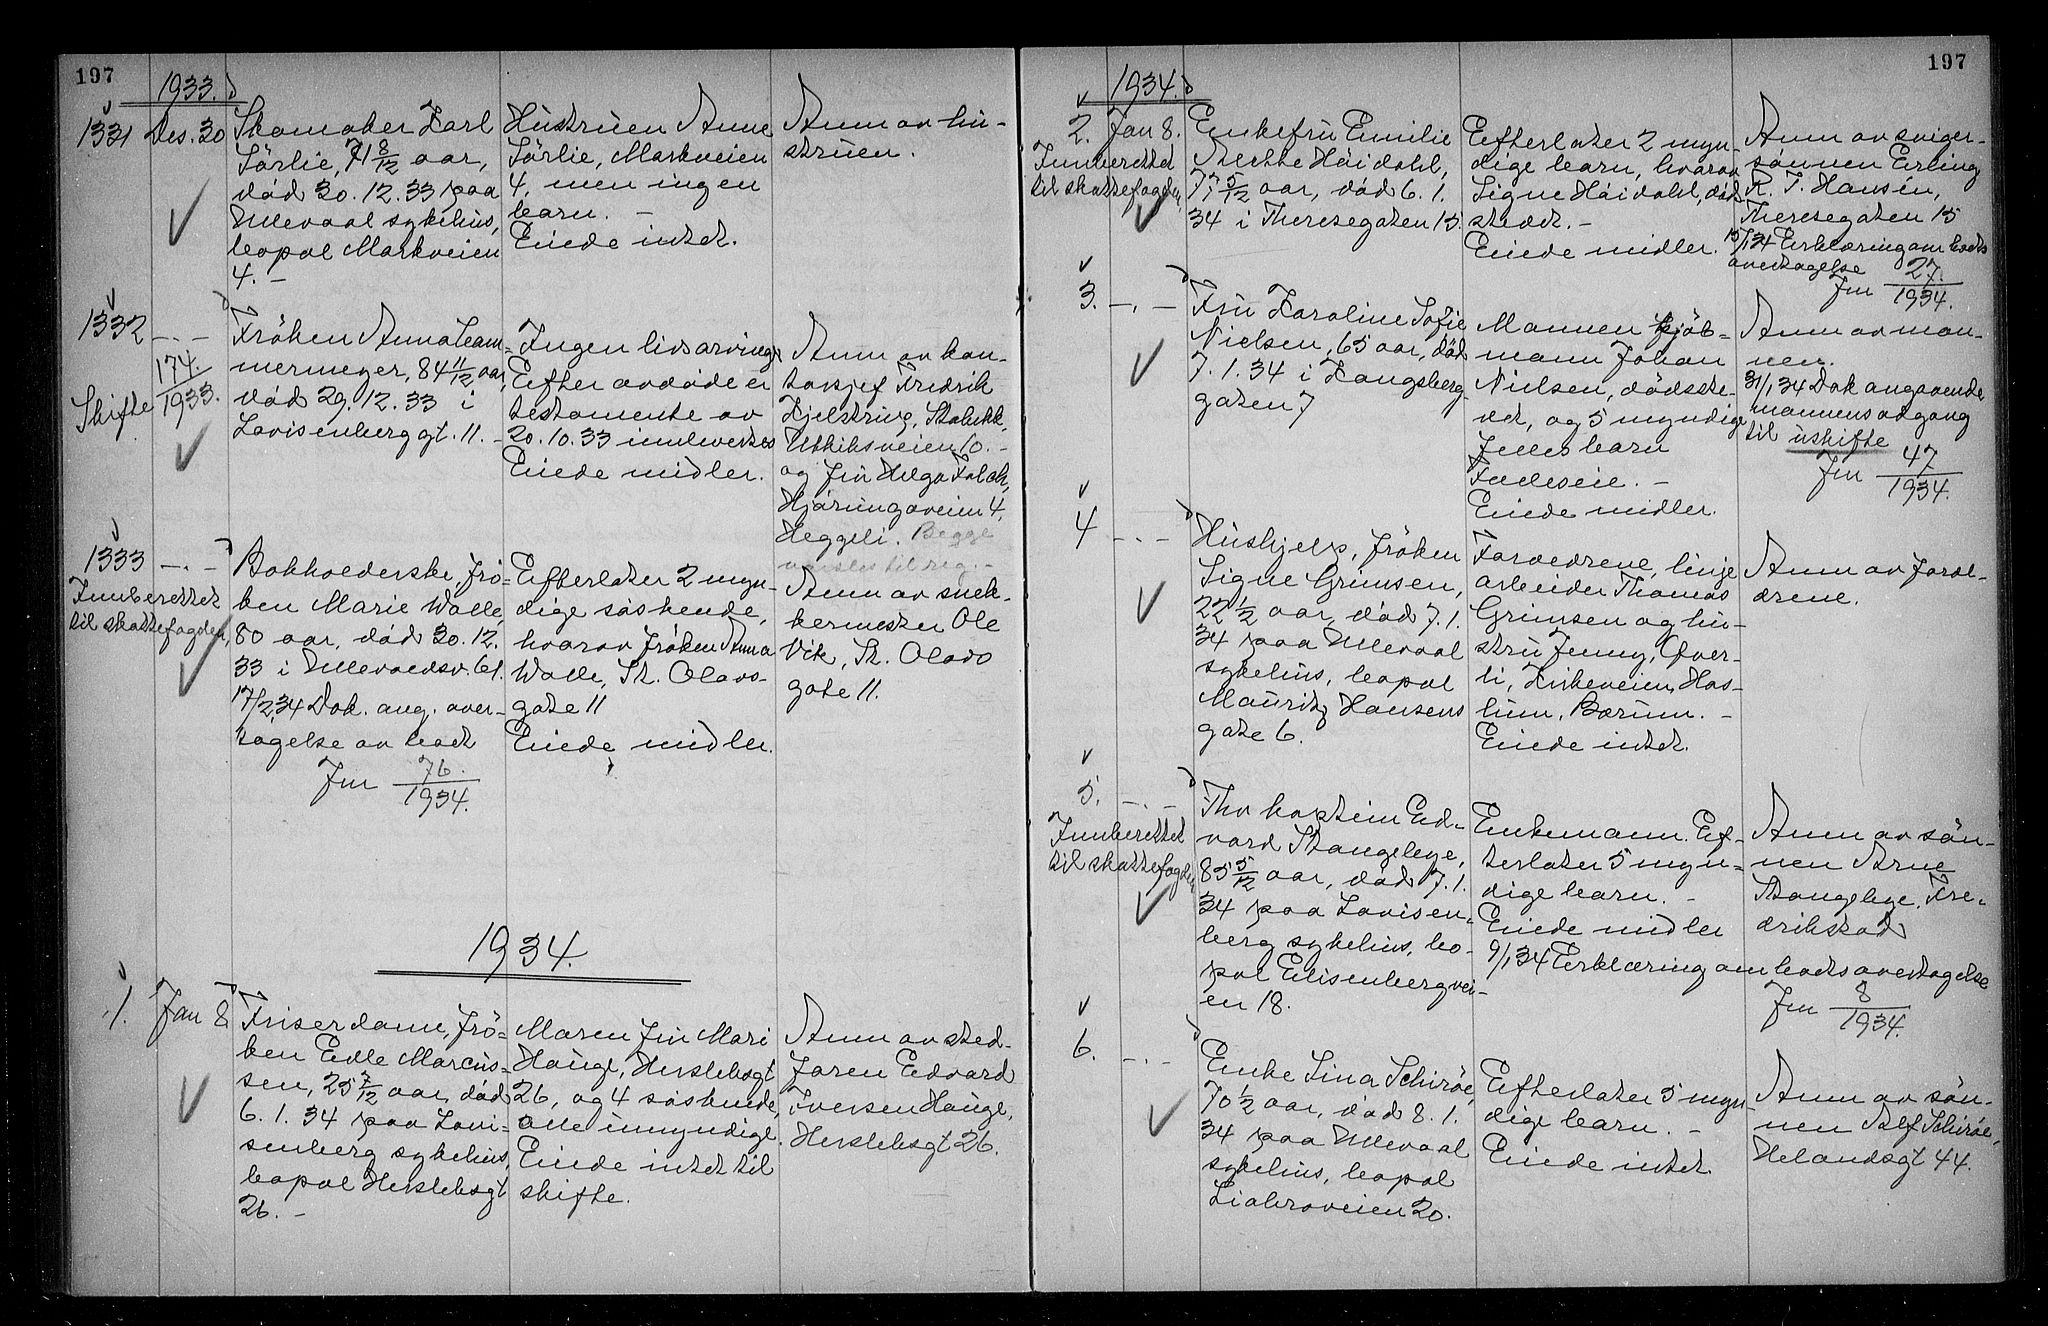 197
1933.
1331
Des. 30
Skomaker Karl
Sörlie, 71 8/12 aar,
död 30.12.33 paa
Ullevaal sykehus,
bopæl Markveien
4. –
Hustruen Anne
Sörlie, Markveien
4, men ingen
barn. –
Eiede intet.
Anm av hu-
struen.
1332
Skifte
– . –
174.
1933.
Fröken Anna Cam-
mermeyer, 84 11/12 aar,
död 29.12.33 i
Lovisenberggt. 11. –
Ingen livsarvinger
Efter avdöde er
testamente av
20.10.33 innleveres
Eiede midler.
Anm av kon-
torsjef Fredrik
Kjelstrup, Stabekk,
Utkiksveien 10. –
og fru Helga Falch,
Hjörungaveien 4,
Heggeli. Begge
varsles til reg. –
1333
Innberettet
til skattefogden,
– . –
Bokholderske, frö-
ken Marie Wolle,
80 aar, död 30.12.
33 i Ullevoldsv. 61.
17/2 34 Dok. ang. over-
tagelse av boet
Jnr 76.
1934.
Efterlater 2 myn-
dige söskende,
hvorav fröken Anna
Wolle, St. Olavs-
gate 11
Eiede midler.
Anm av snek-
kermester Ole
Vik, St. Olavs
gate 11.
1934.
1.
Jan 8.
Friserdame, frö-
ken Edle Marcus-
sen, 25 7/12 aar, död
6.1.34 paa Lovi-
senberg sykehus,
bopæl Herslebsgt
26. –
Moren fru Mari
Hauge, Herslebsgt
26, og 4 söskende,
alle umyndige.
Eiede intet til
skifte.
Anm av sted-
faren Edvard
Iversen Hauge,
Herslebsgt 26.
197
1934.
2.
Innberettet
til skattefogden,
Jan 8.
Enkefru Emilie
Høidahl,
77 5/12 aar, död 6.1.
34 i Theresegaten 15.
Efterlater 2 myn-
dige barn, hvorav
Signe Høidahl, död-
stedet. –
Eiede midler.
Anm av sviger-
sønnen Erling
R. T. Hansen,
Theresegaten 15
15/1 34 Erklæring om boets
overtagelse
Jnr 27.
1934.
3.
– . –
Fru Karoline Sofie
Nielsen, 65 aar, död
7.1.34 i Kongsberg-
gaten 7
Mannen kjöb-
mann Johan
Nielsen, dödsste-
det, og 5 myndige
felles barn
Felleseie. –
Eiede midler.
Anm av man-
nen.
31/1 34 Dok angaaende
mannens adgang
til uskifte
Jnr 47
1934.
4
– . –
Hushjelp, fröken
Signe Grimsen,
22 1/2 aar, död 7.1.
34 paa Ullevaal
sykehus, bopæl
Mauritz Hansens
gate 6.
Foreldrene, linje-
arbeider Thomas
Grimsen og hu-
stru Jenny, Över-
li, Kirkeveien, Has-
lum, Bærum. –
Eiede intet.
Anm av forel-
drene.
5.
Innberettet
til skattefogden
– . –
Fhv kaptein Ed-
vard Stangebye,
85 5/12 aar, död 7.1.
34 paa Lovisen-
berg sykehus, bo-
pæl Elisenbergvei-
en 18.
Enkemann. Ef-
terlater 5 myn-
dige barn. –
Eiede midler
9/1 34 Erklæring om boets overtagelse
Anm av sön-
nen Arne
Stangebye, Fre-
drikstad
Jnr 8
1934.
6.
– . –
Enke Lina Schiröe,
70 1/2 aar, död 8.1.
34 paa Ullevaal
sykehus, bopæl
Liabroveien 20.
Efterlater 5 myn-
dige barn. –
Eiede intet.
Anm av sön-
nen Alf Schiröe,
Helandsgt 44.